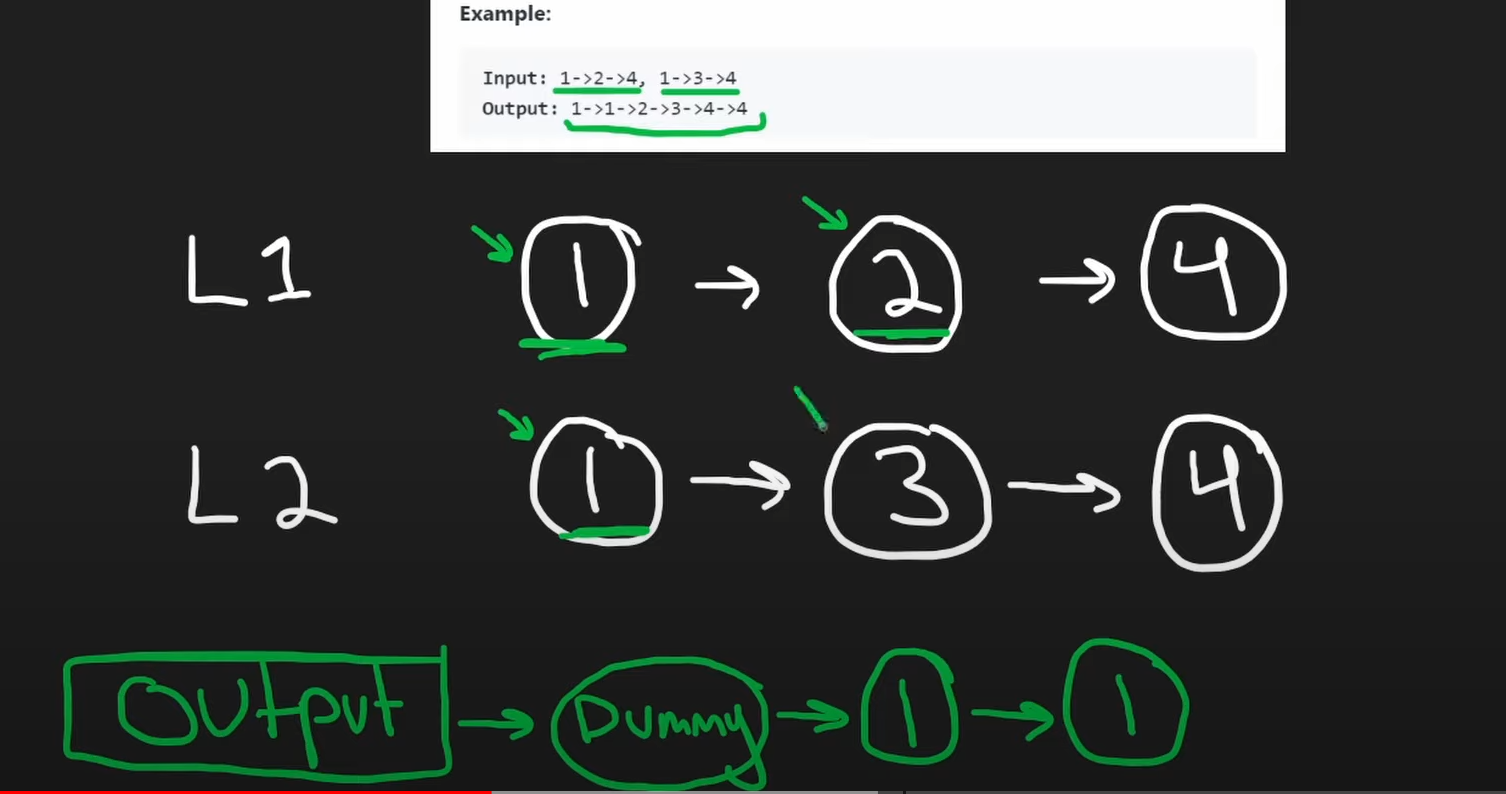 Example:
Input: 1->2->4, 1->3->4
Output: 1->1->2->3->4->4
L1 1 → 2 → 4
L2 1 → 3 → 4
Output → Dummy → 1 → 1